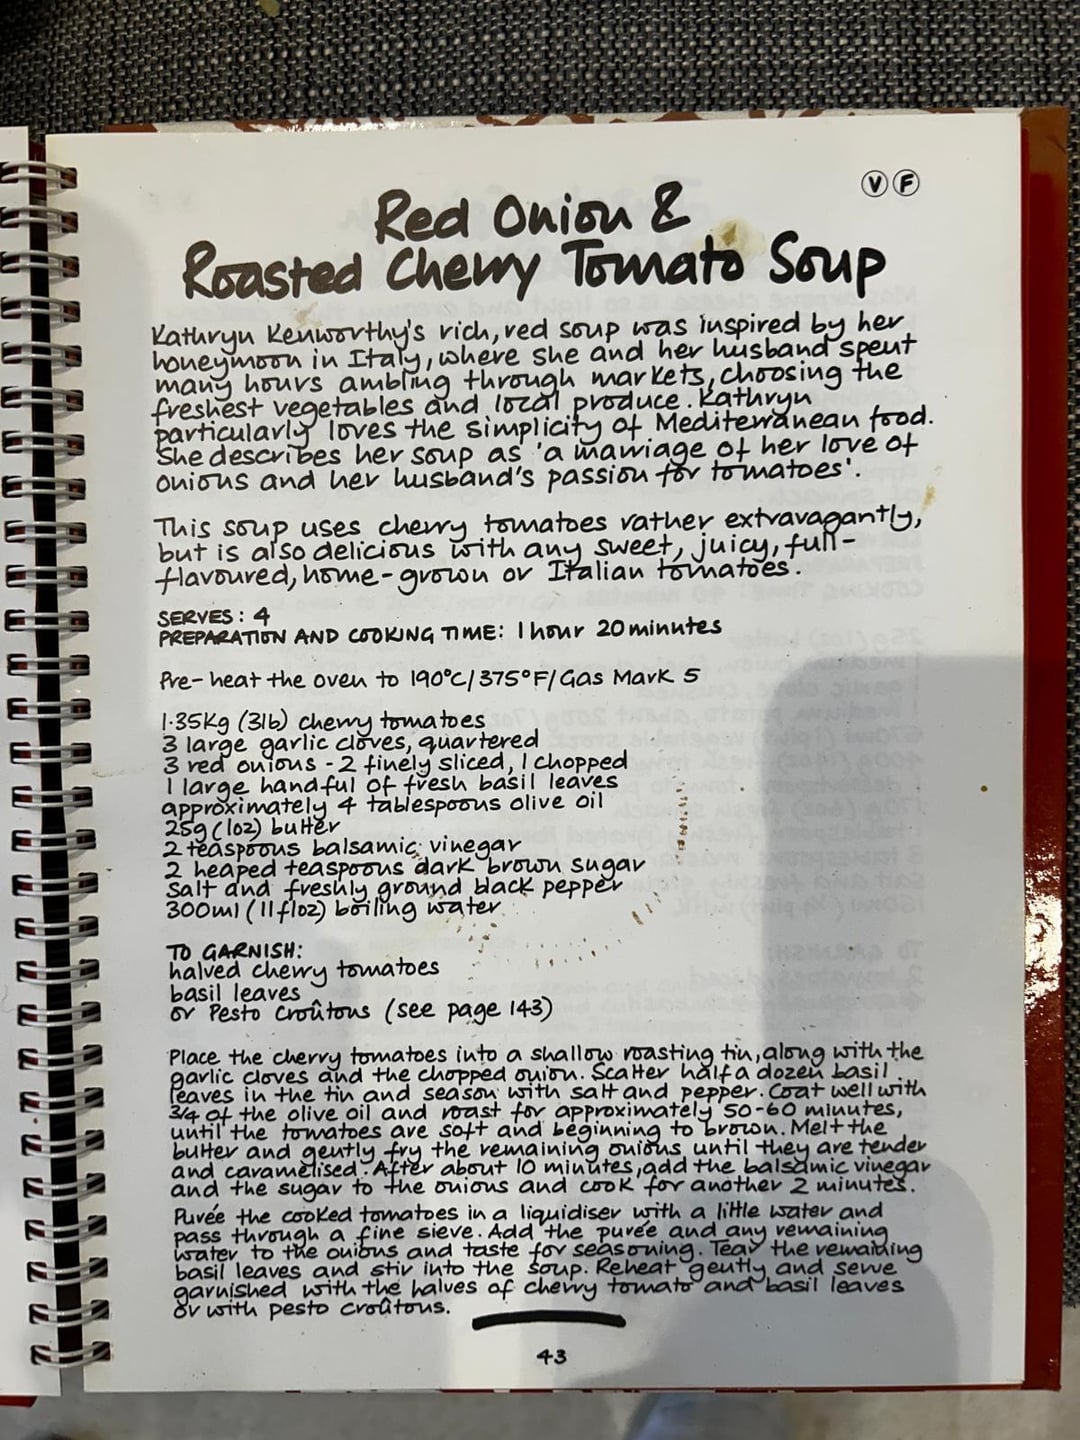 V F
Red Onion &
Roasted Cherry Tomato Soup
Kathryn Kenworthy's rich, red soup was inspired by her
honeymoon in Italy, where she and her husband spent
many hours ambling through markets, choosing the
freshest vegetables and local produce. Kathryn
particularly loves the simplicity of Mediterranean food.
She describes her soup as 'a marriage of her love of
onions and her husband's passion for tomatoes'.
This soup uses cherry tomatoes rather extravagantly,
but is also delicious with any sweet, juicy, full-
flavoured, home-grown or Italian tomatoes.
SERVES: 4
PREPARATION AND COOKING TIME: 1 hour 20 minutes
Pre-heat the oven to 190°C/375°F/Gas Mark 5
1.35kg (3lb) cherry tomatoes
3 large garlic cloves, quartered
3 red onions - 2 finely sliced, 1 chopped
1 large handful of fresh basil leaves
approximately 4 tablespoons olive oil
25g (1oz) butter
2 teaspoons balsamic vinegar
2 heaped teaspoons dark brown sugar
salt and freshly ground black pepper
300ml (11floz) boiling water
TO GARNISH:
halved cherry tomatoes
basil leaves
or Pesto Croûtons (see page 143)
Place the cherry tomatoes into a shallow roasting tin, along with the
garlic cloves and the chopped onion. Scatter half a dozen basil
leaves in the tin and season with salt and pepper. Coat well with
3/4 of the olive oil and roast for approximately 50-60 minutes,
until the tomatoes are soft and beginning to brown. Melt the
butter and gently fry the remaining onions until they are tender
and caramelised. After about 10 minutes, add the balsamic vinegar
and the sugar to the onions and cook for another 2 minutes.
Purée the cooked tomatoes in a liquidiser with a little water and
pass through a fine sieve. Add the purée and any remaining
water to the onions and taste for seasoning. Tear the remaining
basil leaves and stir into the soup. Reheat gently and serve
garnished with the halves of cherry tomato and basil leaves
or with pesto croûtons.
43